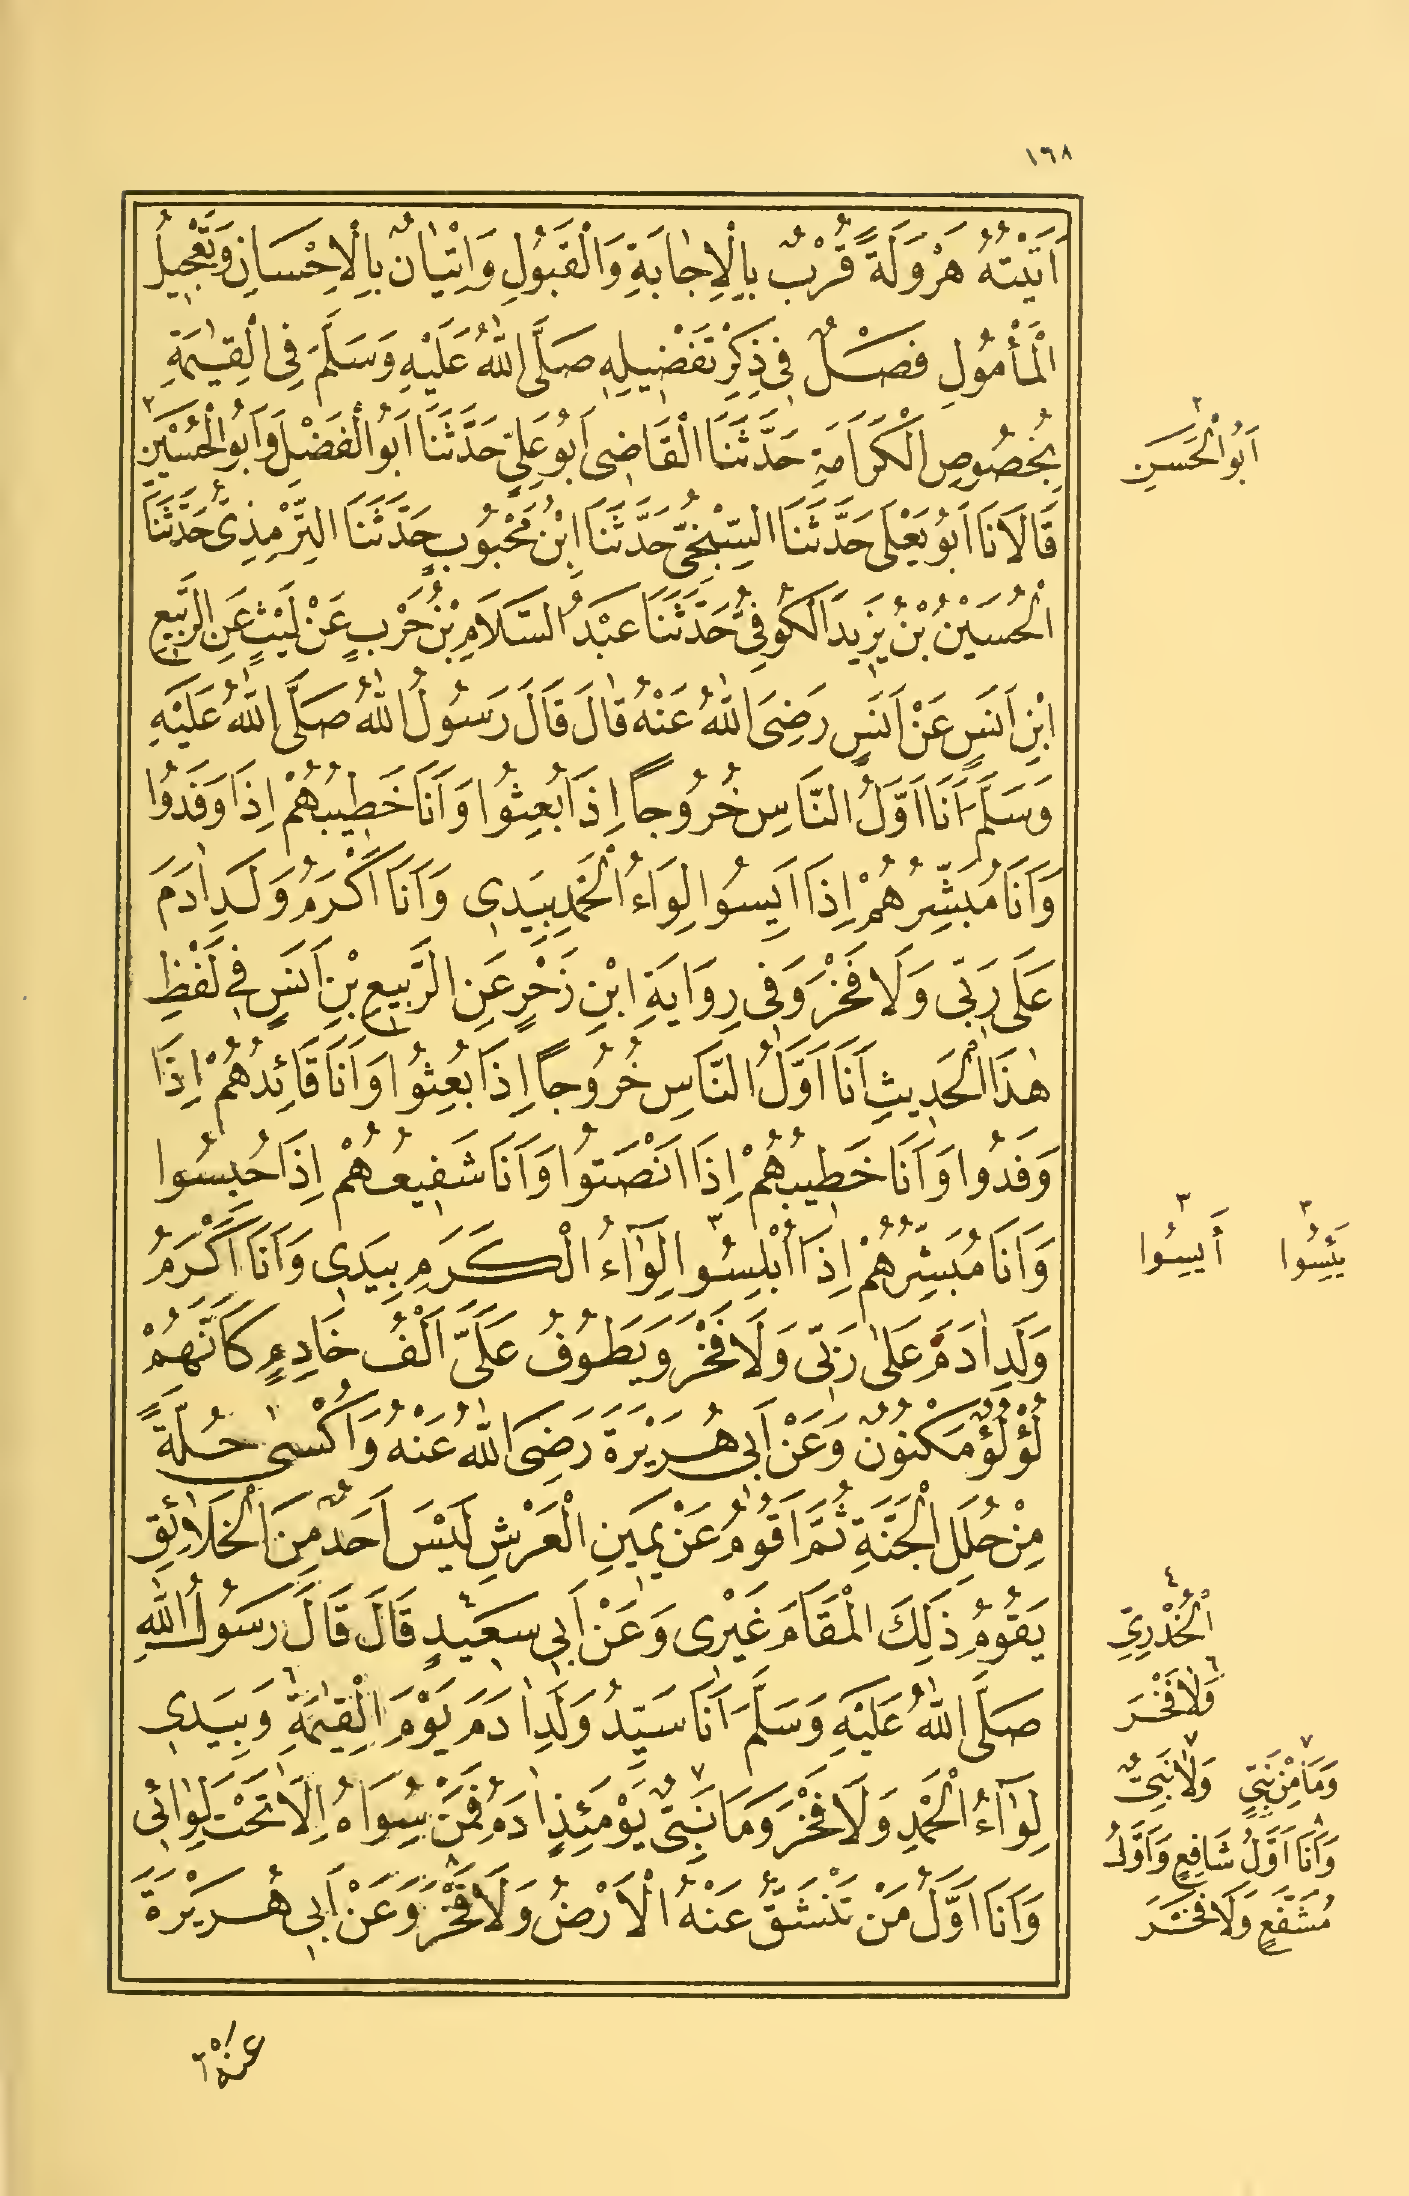 ١٦٨
اَتَيْتُهُ هَرْوَلَةً قُرْبٌ بِالْاِجَابَةِ وَالْقَبُولِ وَاِتْيَانٌ بِالْاِحْسَانِ وَتَعْجِيلُ
الْمَأْمُولِ فَصْلٌ فِى ذِكْرِ تَفْضِيلِهِ صَلَّى اللّٰهُ عَلَيْهِ وَسَلَّمَ فِى الْقِيٰمَةِ
بِخُصُوصِ الْكَرَامَةِ حَدَّثَنَا الْقَاضِى اَبُو عَلِىٍّ حَدَّثَنَا اَبُو الْفَضْلِ وَاَبُو الْحُسَيْنِ ٢
قَالَا نَا اَبُو يَعْلٰى حَدَّثَنَا السِّنْجِىُّ حَدَّثَنَا ابْنُ مَحْبُوبٍ حَدَّثَنَا التِّرْمِذِىُّ حَدَّثَنَا
الْحُسَيْنُ بْنُ يَزِيدَ الْكُوفِىُّ حَدَّثَنَا عَبْدُ السَّلَامِ بْنُ حَرْبٍ عَنْ لَيْثٍ عَنِ الرَّبِيعِ
ابْنِ اَنَسٍ عَنْ اَنَسٍ رَضِىَ اللّٰهُ عَنْهُ قَالَ قَالَ رَسُولُ اللّٰهِ صَلَّى اللّٰهُ عَلَيْهِ
وَسَلَّمَ اَنَا اَوَّلُ النَّاسِ خُرُوجاً اِذَا بُعِثُوا وَاَنَا خَطِيبُهُمْ اِذَا وَفَدُوا
وَاَنَا مُبَشِّرُهُمْ اِذَا اَيِسُوا لِوَاءُ الْحَمْدِ بِيَدِى وَاَنَا اَكْرَمُ وَلَدِ اٰدَمَ
عَلٰى رَبِّى وَلَا فَخْرَ وَفِى رِوَايَةِ ابْنِ زَحْرٍ عَنِ الرَّبِيعِ بْنِ اَنَسٍ فِى لَفْظِ
هٰذَا الْحَدِيثِ اَنَا اَوَّلُ النَّاسِ خُرُوجاً اِذَا بُعِثُوا وَاَنَا قَائِدُهُمْ اِذَا
وَفَدُوا وَاَنَا خَطِيبُهُمْ اِذَا اَنْصَتُوا وَاَنَا شَفِيعُهُمْ اِذَا حُبِسُوا
وَاَنَا مُبَشِّرُهُمْ اِذَا اُبْلِسُوا ٣ لِوَآءُ الْكَرَمِ بِيَدِى وَاَنَا اَكْرَمُ
وَلَدِ اٰدَمَ عَلٰى رَبِّى وَلَا فَخْرَ وَيَطُوفُ عَلَىَّ اَلْفُ خَادِمٍ كَاَنَّهُمْ
لُؤْلُؤٌ مَكْنُونٌ وَعَنْ اَبِى هُرَيْرَةَ رَضِىَ اللّٰهُ عَنْهُ وَاُكْسٰى حُلَّةً
مِنْ حُلَلِ الْجَنَّةِ ثُمَّ اَقُومُ عَنْ يَمِينِ الْعَرْشِ لَيْسَ اَحَدٌ مِنَ الْخَلَائِقِ
يَقُومُ ذٰلِكَ الْمَقَامَ غَيْرِى وَعَنْ اَبِى سَعِيدٍ ٤ قَالَ قَالَ رَسُولُ اللّٰهِ
صَلَّى اللّٰهُ عَلَيْهِ وَسَلَّمَ اَنَا سَيِّدُ وَلَدِ اٰدَمَ يَوْمَ الْقِيٰمَةِ ٦ وَبِيَدِى
لِوَآءُ الْحَمْدِ وَلَا فَخْرَ وَمَا نَبِىٌّ ٧ يَوْمَئِذٍ اٰدَمُ فَمَنْ سِوَاهُ اِلَّا تَحْتَ لِوَائِى
وَاَنَا اَوَّلُ مَنْ تَنْشَقُّ عَنْهُ الْاَرْضُ وَلَا فَخْرَ ٨ وَعَنْ اَبِى هُرَيْرَةَ
٢
اَبُو الْحَسَنِ
٣ ٣
يَئِسُوا أَيِسُوا
٤
الْخُدْرِىِّ
٦
وَلَا فَخْرَ
٧ ٧
وَمَا مِنْ نَبِىٍّ وَلَا نَبِىٌّ
٨
وَاَنَا اَوَّلُ شَافِعٍ وَاَوَّلُ
مُشَفَّعٍ وَلَا فَخْرَ